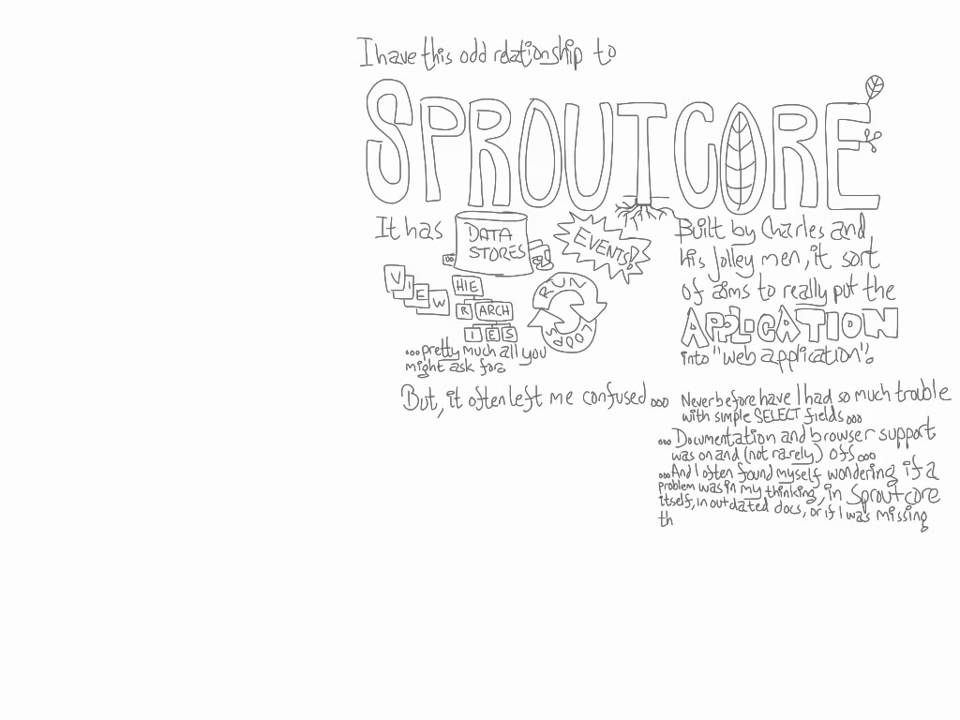 I have this odd relationship to
SPROUTCORE
It has
DATA
STORES
EVENTS!
VIEW
HIE
R ARCH
I E S
RUN
LOOPS
...pretty much all you
might ask for.
Built by Charles and
his Jolley men, it sort
of aims to really put the
APPLICATION
into "web application".
But, it often left me confused...
Never before have I had so much trouble
with simple SELECT fields...
...Documentation and browser support
was on and (not rarely) off...
...And I often found myself wondering if a
problem was in my thinking, in Sproutcore
itself, in outdated docs, or if I was missing
th